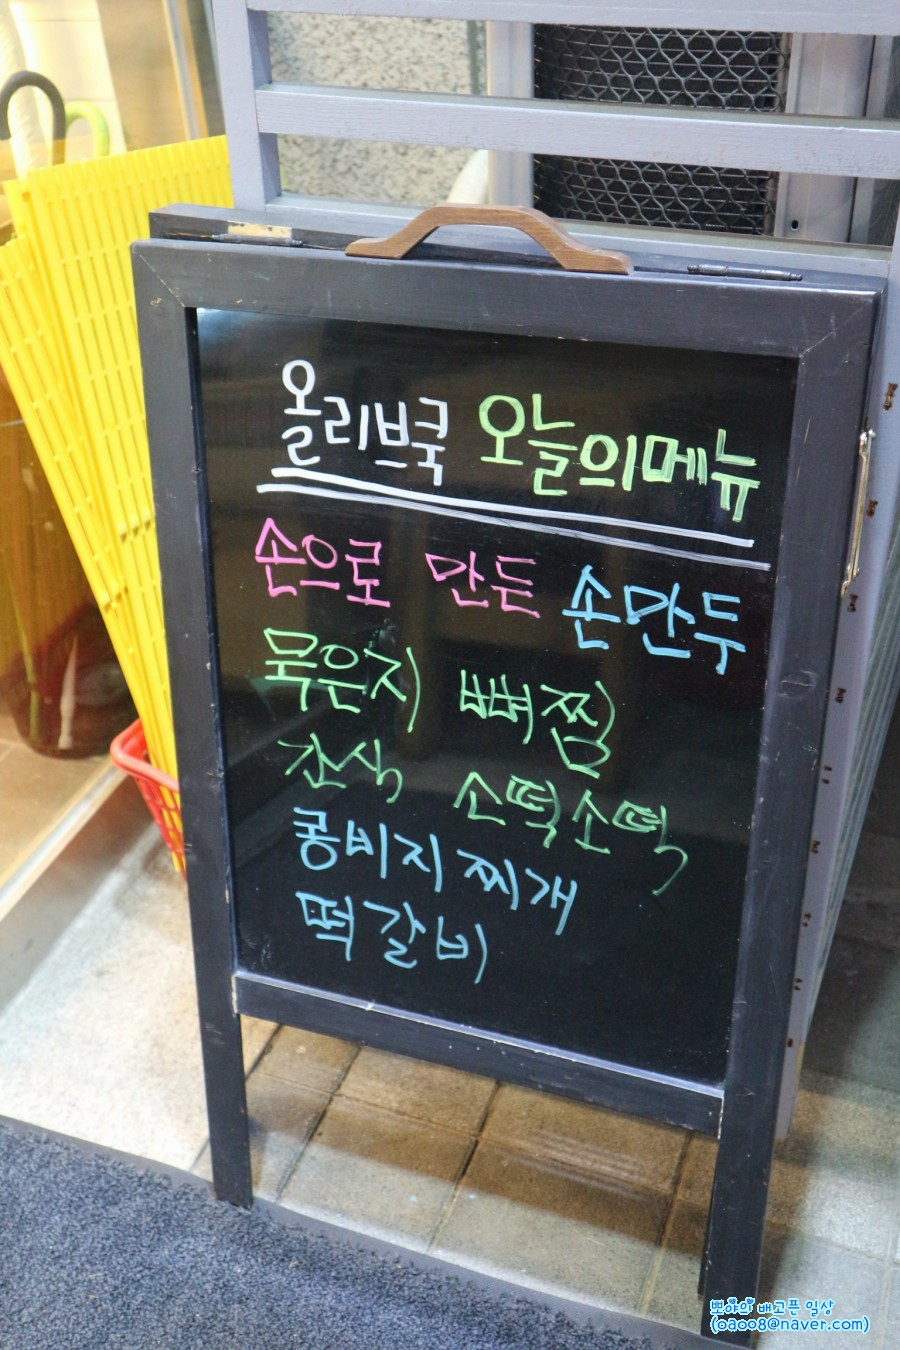 올리브쿡 오늘의메뉴
손으로 만든 손만두
묵은지 뼈찜
간식 소떡소떡
콩비지 찌개
떡갈비
뽀야의 배고픈 일상
(oaoo8@naver.com)